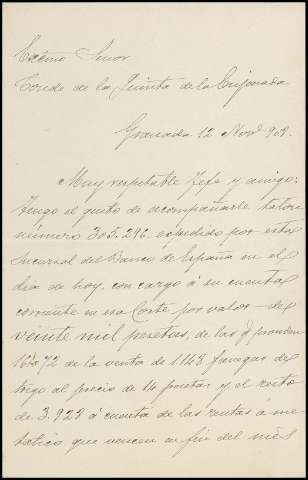 Excmo Señor
Conde de la Quinta de la Enjarada
Granada 12 Novb 908.
Muy respetable Jefe y amigo:
Tengo el gusto de acompañarle talon
número 305.296. expedido por esta
Sucursal del Banco de España en el
dia de hoy, con cargo á su cuenta
corriente en esa Corte por valor de
veinte mil pesetas, de las q proceden
de la venta de 1148 fanegas de
trigo al precio de 14 pesetas y el resto
de 3.928 á cuenta de las rentas á me
talico que vencen en fin del mes